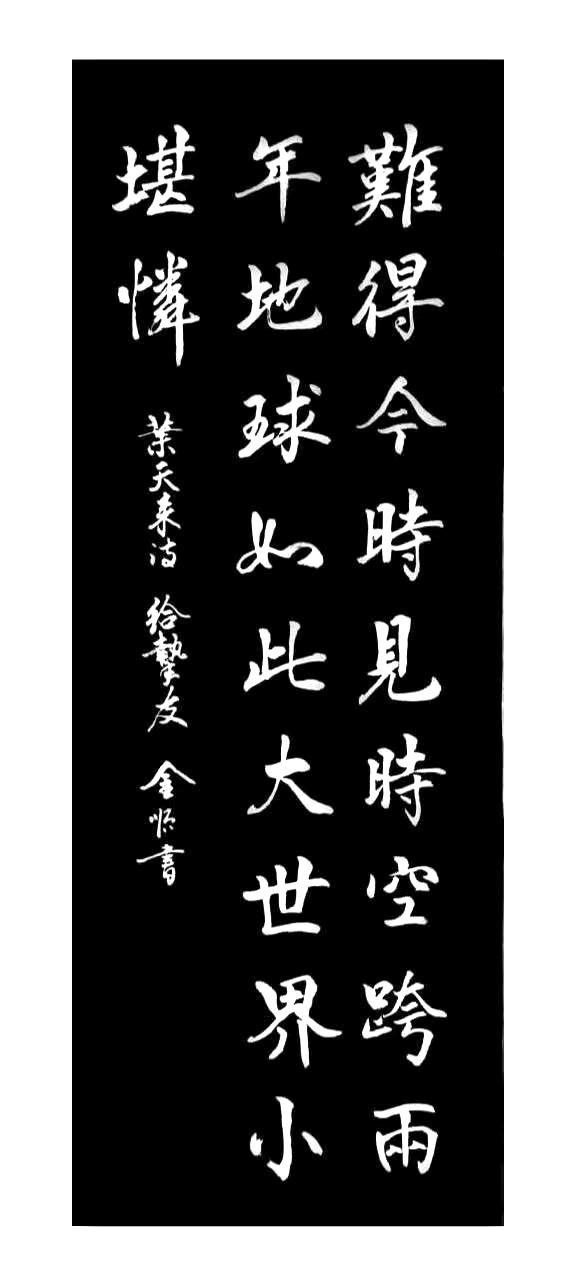 難得今時見時空跨兩
年地球如此大世界小
堪憐
葉天来詩 給摯友 金順書